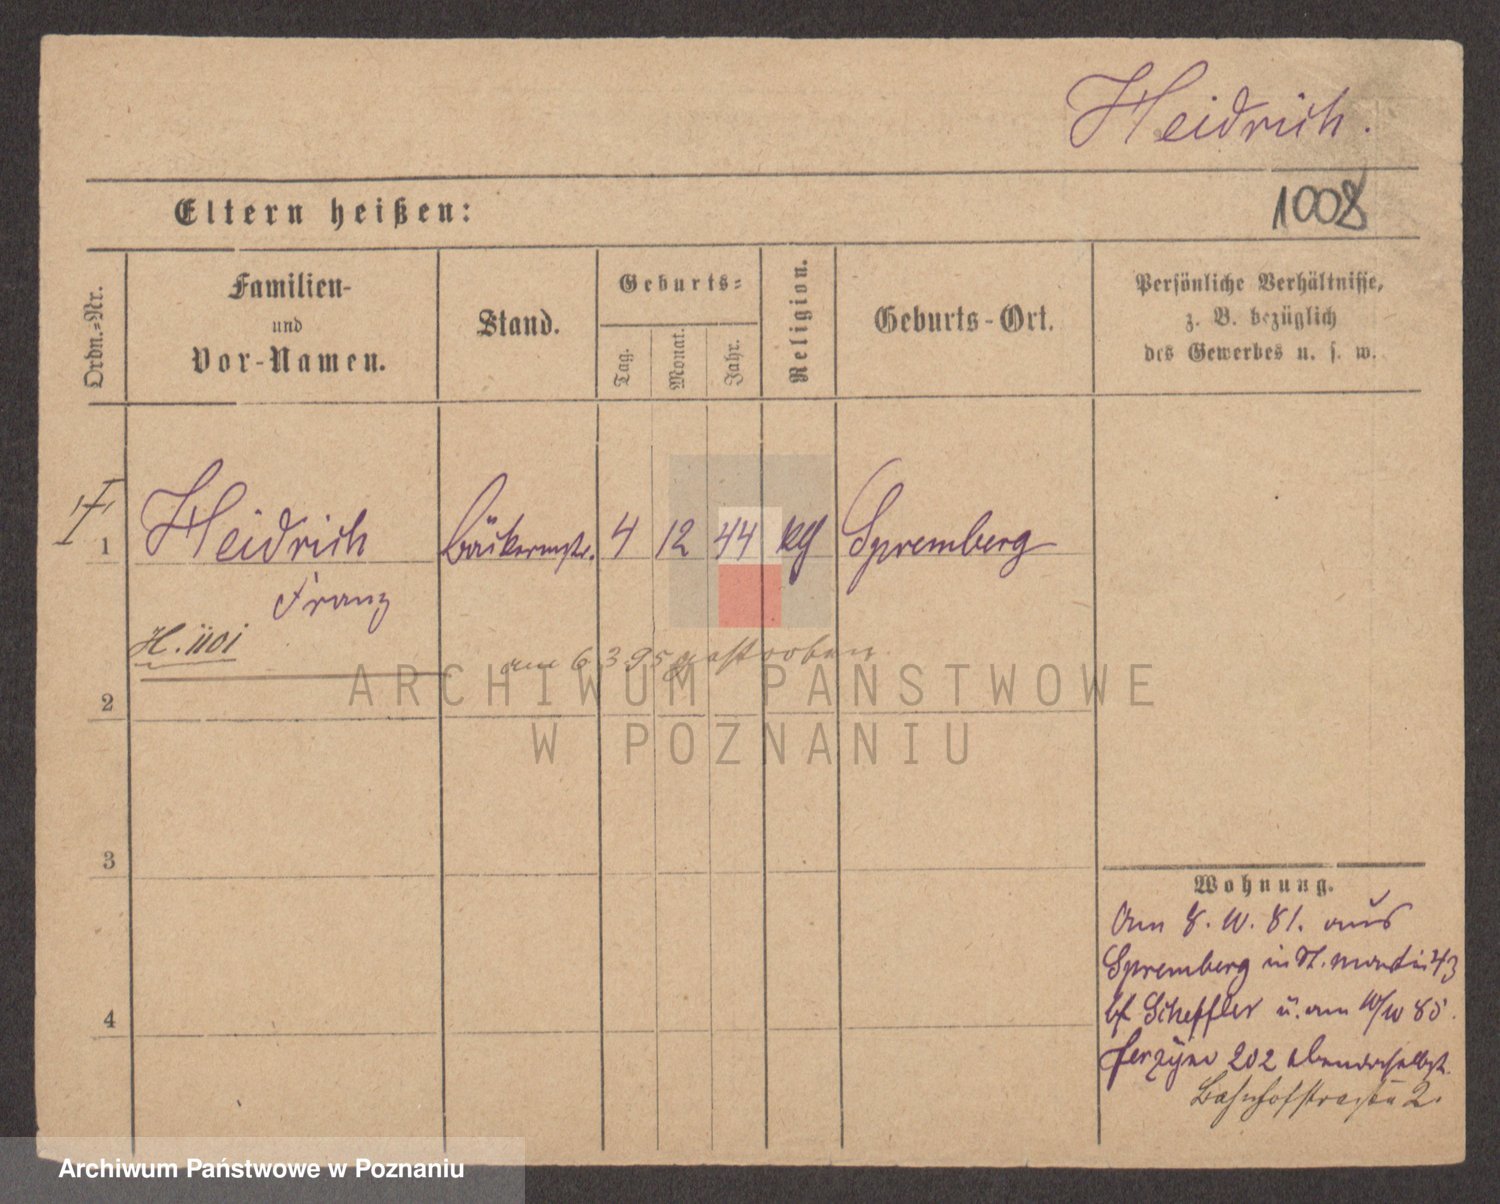 Heidrich.
1008
Eltern heißen:
Ordn.=Nr.
Familien-
und
Vor-Namen.
Stand.
Geburts=
Tag.
Monat.
Jahr.
Religion.
Geburts-Ort.
Persönliche Verhältnisse,
z. B. bezüglich
des Gewerbes u. s. w.
1
Heidrich
Bäckermstr.
4
12
44
Spremberg
Franz
am 6 3 95 gestorben.
2
3
4
Wohnung.
Am 8. 10. 81. aus
Spremberg in St. Martin 43
bei Scheffler u. am 10/10 85.
202 ebendaselbst.
Bahnhofstrasse 2.
ARCHIWUM PAŃSTWOWE
W POZNANIU
Archiwum Państwowe w Poznaniu